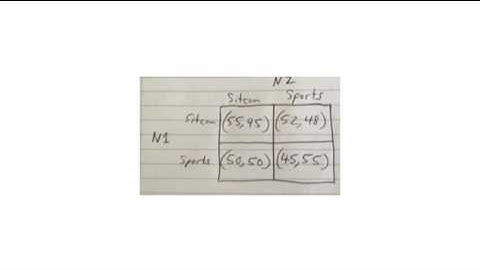 N2
Sitcom Sports
Sitcom (55,45) (52,48)
N1
Sports (50,50) (45,55)